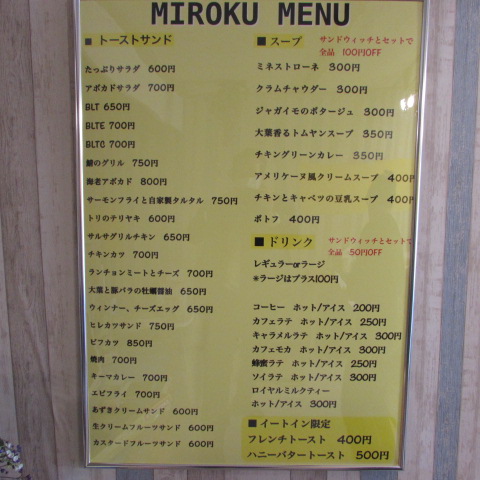 MIROKU MENU
■ トーストサンド
たっぷりサラダ 600円
アボカドサラダ 700円
BLT 650円
BLTE 700円
BLTC 700円
鯖のグリル 750円
海老アボカド 800円
サーモンフライと自家製タルタル 750円
トリのテリヤキ 600円
サルサグリルチキン 650円
チキンカツ 700円
ランチョンミートとチーズ 700円
大葉と豚バラの牡蠣醤油 650円
ウィンナー、チーズエッグ 650円
ヒレカツサンド 750円
ビフカツ 850円
焼肉 700円
キーマカレー 700円
エビフライ 700円
あずきクリームサンド 600円
生クリームフルーツサンド 600円
カスタードフルーツサンド 600円
■ スープ
サンドウィッチとセットで
全品 100円OFF
ミネストローネ 300円
クラムチャウダー 300円
ジャガイモのポタージュ 300円
大葉香るトムヤンスープ 350円
チキングリーンカレー 350円
アメリケーヌ風クリームスープ 400円
チキンとキャベツの豆乳スープ 400円
ポトフ 400円
■ ドリンク
サンドウィッチとセットで
全品 50円OFF
レギュラーorラージ
*ラージはプラス100円
コーヒー ホット/アイス 200円
カフェラテ ホット/アイス 250円
キャラメルラテ ホット/アイス 300円
カフェモカ ホット/アイス 300円
蜂蜜ラテ ホット/アイス 250円
ソイラテ ホット/アイス 300円
ロイヤルミルクティー
ホット/アイス 300円
■ イートイン限定
フレンチトースト 400円
ハニーバタートースト 500円